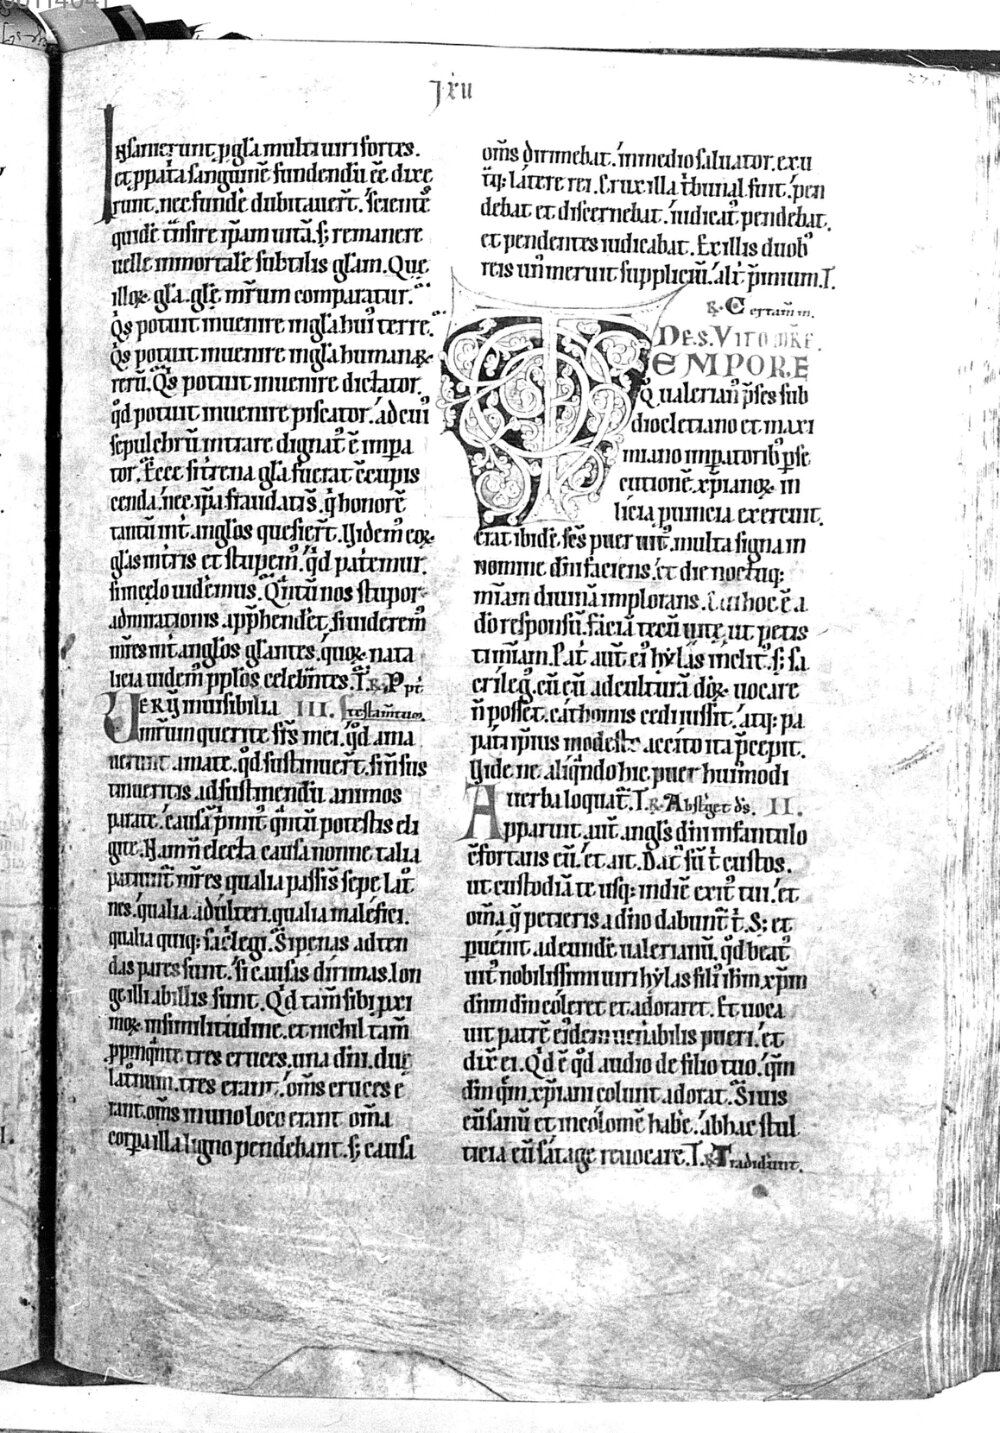 lxii
Insanierunt ꝓ gl̃a multi uiri fortes.
et p̱parati sanguinẽ fundendũ eẽ dixe
runt. nec funde᷒ dubitauer̃t. scientẽ
quidẽ trãsire ip̃am uitã. s; remanere
uelle inmortalẽ subtilis gl̃am. Que
illoꝝ gl̃a. gl̃ę mr̃um comparatur.
Q̃s potuit inuenire in gl̃a hui᷒ terrę.
Q̃s potuit inuenire in gl̃a humanaꝝ
rerũ. Q̃s potuit inuenire dictator.
qd̃ potuit inuenire piscator. ad cui᷒
sepulchrũ intrare dignat᷒ ẽ impa
tor. Ecce si trena gl̃a fuerat cõcupis
cenda. nec ip̃a fraudati s̃. q̃ honorẽ
tantũ int̃ angl̃os quesier̃t. Videm᷒ eoꝝ
gl̃as in tr̃is et stupem᷒. q̃d pateremur.
si in celo uidemus. Quñtũ nos stupor
admirationis app̃hendẽt. si uiderem᷒
mr̃es int̃ angl̃os gl̃antes. quoꝝ nata
licia uidem᷒ ppl̃os celebrñtes. T. R. Ppt̃
Verũ inuisibilia III. testam̃tum.
mr̃tirum querite fr̃s mei. q̃d ama
uerunt. amate. q̃d sustinuer̃t. sin̾ sus
tinueritis. ad sustinendũ animos
parate. causã primit᷒ quñtũ potestis eli
gite. Nam ñ electa causa nonne talia
patiunt̃ mr̃es qualia passi s̃ sepe lat᷒
nes. qualia adulteri. qualia malefici.
qualia quiq; sacl̃egi. Si penas adten
das pares sunt. si causas dirimas. lon
ge illi ab illis sunt. Qd̃ tam̃ sibi pxi
moꝝ in similitudine. et nichil tam̃
ppinq̃nte. tres cruces. una dñi. due
latronum. tres erant. om̃s cruces e
rant. om̃s in uno loco erant om̃a
corpa illa ligno pendebant. s; causa
om̃s dirimebat. in medio saluator. ex u
tq; latere rei. Crux illa t̃bunal fuit. pen
debat et discernebat. iudicat᷒ pendebat.
et pendentes iudicabat. Ex illis duob᷒
reis un᷒ meruit supplicitũ. ali᷒ p̃mium. T.
R. Certam̃ m.
DE. S. VITO MR̃E.
TEMPORE
Q̃ ualerian᷒ p̃ses sub
diocletiano et maxi
miano imꝑatorib᷒ ꝑse
cutionẽ xp̃ianoꝝ in
licia puincia exercuit.
erat ibidẽ sc̃s puer uit᷒. multa signa in
nomine dñi faciens. et die noctuq;
mĩam diuinã implorans. Cui hoc ẽ a
do᷒ responsũ. Faciã tecũ uite, ut petis
mĩam. Pat̃ aut̃ ei᷒ hylas melit᷒. s; sa
crileg᷒. cũ eũ ad culturã d᷒oꝝ uocare
ñ posset. cathomis cedi iussit. atq; pa
pata ip̃ius modesto accito ita p̃cepit.
Vide ne aliq̃ndo hic puer hui᷒modi
uerba loquat̃. T. R. Absterget ds̃. II.
Apparuit. aut̃. angl̃s dñi infantulo
cõfortans eũ. et ait. Dat᷒ sũ t̃ custos.
ut custodiã te usq; in diẽ exit᷒ tui. et
om̃a q̃ petieris a dño dabunt̃ t̃. S; et
puẽnit. ad eundẽ ualerianũ. q̃d beat᷒
uit᷒ nobilissimi uiri hylas fili᷒ ih̃m xp̃m
dñm dñ coleret et adoraret. Et uoca
uit patrẽ eidem uen̾abilis pueri. et
dix̃ ei. Qd̃ ẽ q̃d audio de filio tuo. q̃m
dñm q̃m xp̃iani colunt adorat. Si uis
eũ sanũ et incolomẽ habe᷒. ab hac stul
ticia eũ satage reuocare. T. R. Tradiderunt.